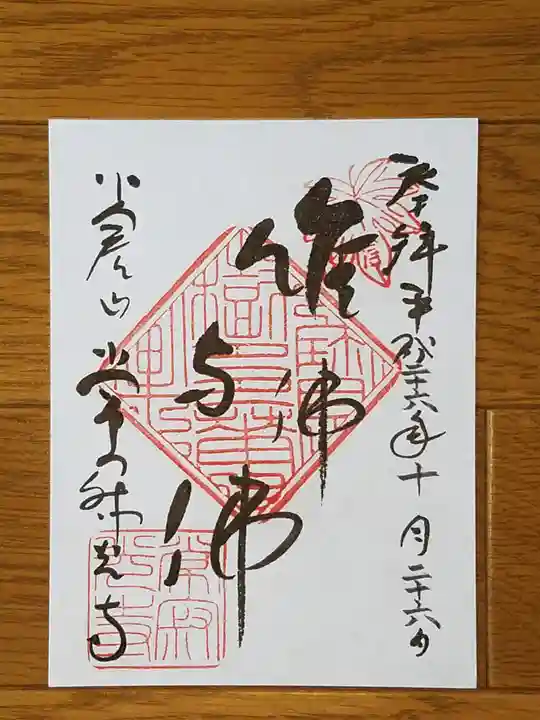 奉拝 平成二十六年十月二十六日
唯佛
与佛
小倉山 常寂光寺